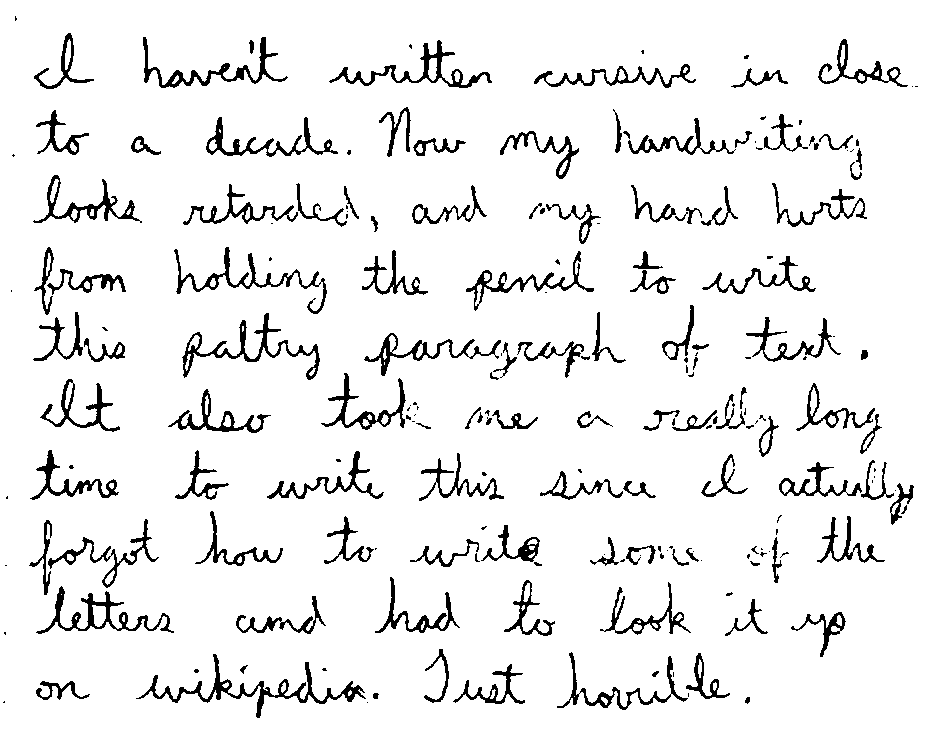 I haven't written cursive in close
to a decade. Now my handwriting
looks retarded, and my hand hurts
from holding the pencil to write
this paltry paragraph of text.
It also took me a really long
time to write this since I actually
forgot how to write some of the
letters and had to look it up
on wikipedia. Just horrible.